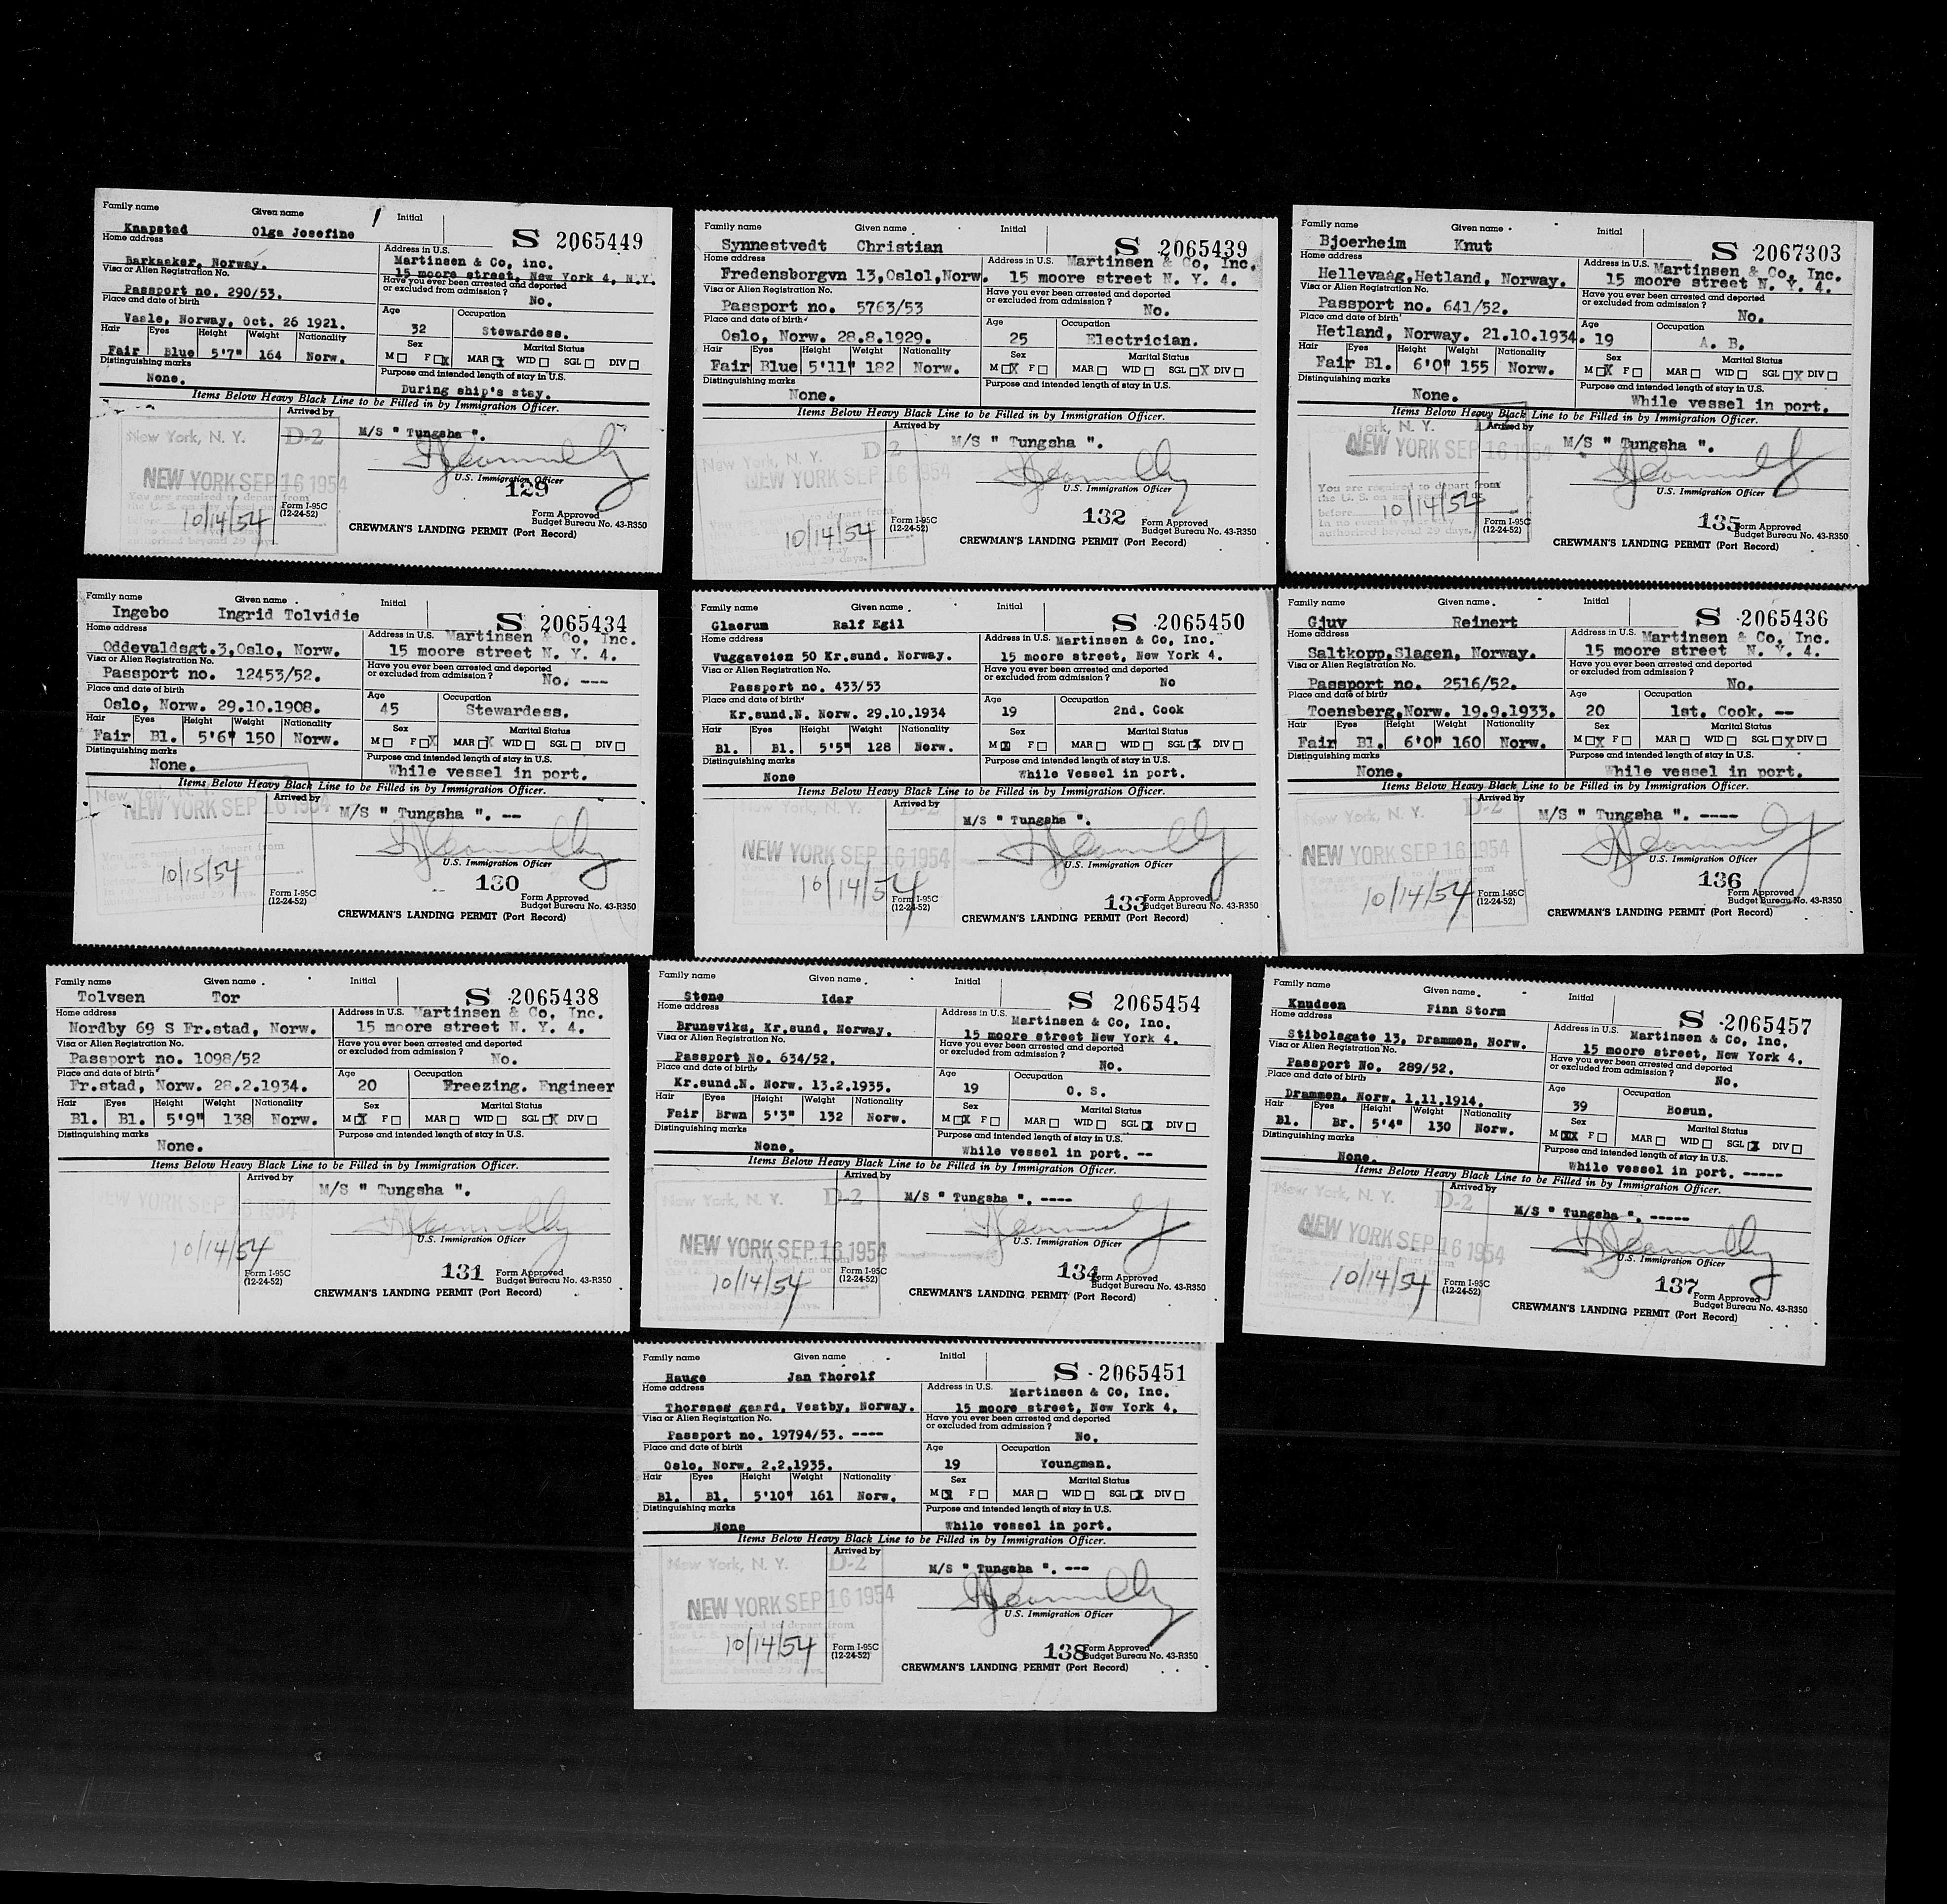 Family name Given name Initial
Knapstad Olga Josefine S 2065449
Home address Address in U.S.
Barkaaker, Norway. Martinsen & Co, inc.
15 moore street, New York 4, N.Y.
Visa or Alien Registration No. Have you ever been arrested and deported or excluded from admission ?
Passport no. 290/53. No.
Place and date of birth Age Occupation
Vaale, Norway, Oct. 26 1921. 32 Stewardess.
Hair Eyes Height Weight Nationality Sex Marital Status
Fair Blue 5'7" 164 Norw. M F X MAR X WID SGL DIV
Distinguishing marks Purpose and intended length of stay in U.S.
None. During ship's stay.
Items Below Heavy Black Line to be Filled in by Immigration Officer.
Arrived by
New York, N. Y. D-2 M/S " Tungsha ".
NEW YORK SEP 16 1954
U.S. Immigration Officer
129
10/14/54
Form I-95C
(12-24-52)
Form Approved
Budget Bureau No. 43-R350
CREWMAN'S LANDING PERMIT (Port Record)
Family name Given name Initial
Synnestvedt Christian S 2065439
Home address Address in U.S. Martinsen & Co, Inc.
Fredensborgvn 13,Oslo1,Norw. 15 moore street N. Y. 4.
Visa or Alien Registration No. Have you ever been arrested and deported or excluded from admission ?
Passport no. 5763/53 No.
Place and date of birth Age Occupation
Oslo, Norw. 28.8.1929. 25 Electrician.
Hair Eyes Height Weight Nationality Sex Marital Status
Fair Blue 5'11" 182 Norw. M X F MAR WID SGL X DIV
Distinguishing marks Purpose and intended length of stay in U.S.
None.
Items Below Heavy Black Line to be Filled in by Immigration Officer.
Arrived by
New York, N. Y. D-2 M/S " Tungsha ".
NEW YORK SEP 16 1954
U.S. Immigration Officer
132
10/14/54
Form I-95C
(12-24-52)
Form Approved
Budget Bureau No. 43-R350
CREWMAN'S LANDING PERMIT (Port Record)
Family name Given name Initial
Bjoerheim Knut S 2067303
Home address Address in U.S. Martinsen & Co, Inc.
Hellevaag,Hetland, Norway. 15 moore street N. Y. 4.
Visa or Alien Registration No. Have you ever been arrested and deported or excluded from admission ?
Passport no. 641/52. No.
Place and date of birth Age Occupation
Hetland, Norway. 21.10.1934. 19 A. B.
Hair Eyes Height Weight Nationality Sex Marital Status
Fair Bl. 6'0" 155 Norw. M X F MAR WID SGL X DIV
Distinguishing marks Purpose and intended length of stay in U.S.
None. While vessel in port.
Items Below Heavy Black Line to be Filled in by Immigration Officer.
Arrived by
York, N. Y. M/S " Tungsha ".
NEW YORK SEP 16 1954
You are required to depart from
U.S. Immigration Officer
before 10/14/54
authorised beyond 29 days.
135
Form I-95C
(12-24-52)
Form Approved
Budget Bureau No. 43-R350
CREWMAN'S LANDING PERMIT (Port Record)
Family name Given name Initial
Ingebo Ingrid Tolvidie S 2065434
Home address Address in U.S. Martinsen & Co, Inc.
Oddevaldsgt.3,Oslo, Norw. 15 moore street N. Y. 4.
Visa or Alien Registration No. Have you ever been arrested and deported or excluded from admission ?
Passport no. 12453/52. No. ---
Place and date of birth Age Occupation
Oslo, Norw. 29.10.1908. 45 Stewardess.
Hair Eyes Height Weight Nationality Sex Marital Status
Fair Bl. 5'6" 150 Norw. M F X MAR X WID SGL DIV
Distinguishing marks Purpose and intended length of stay in U.S.
None. While vessel in port.
Items Below Heavy Black Line to be Filled in by Immigration Officer.
Arrived by
M/S " Tungsha ". --
NEW YORK SEP 16 1954
U.S. Immigration Officer
130
10/15/54
Form I-95C
(12-24-52)
Form Approved
Budget Bureau No. 43-R350
CREWMAN'S LANDING PERMIT (Port Record)
Family name Given name Initial
Glaerum Ralf Egil S 2065450
Home address Address in U.S. Martinsen & Co, Inc.
Vuggaveien 50 Kr.sund. Norway. 15 moore street, New York 4.
Visa or Alien Registration No. Have you ever been arrested and deported or excluded from admission ?
Passport no. 433/53 No
Place and date of birth Age Occupation
Kr.sund.N. Norw. 29.10.1934 19 2nd. Cook
Hair Eyes Height Weight Nationality Sex Marital Status
Bl. Bl. 5'5" 128 Norw. M X F MAR WID SGL X DIV
Distinguishing marks Purpose and intended length of stay in U.S.
None While Vessel in port.
Items Below Heavy Black Line to be Filled in by Immigration Officer.
Arrived by
New York, N. Y. D-2 M/S " Tungsha ".
NEW YORK SEP 16 1954
U.S. Immigration Officer
133
10/14/54
Form I-95C
(12-24-52)
Form Approved
Budget Bureau No. 43-R350
CREWMAN'S LANDING PERMIT (Port Record)
Family name Given name Initial
Gjuv Reinert S 2065436
Home address Address in U.S. Martinsen & Co, Inc.
Saltkopp,Slagen, Norway. 15 moore street N. Y. 4.
Visa or Alien Registration No. Have you ever been arrested and deported or excluded from admission ?
Passport no. 2516/52. No.
Place and date of birth Age Occupation
Toensberg,Norw. 19.9.1933. 20 1st. Cook. --
Hair Eyes Height Weight Nationality Sex Marital Status
Fair Bl. 6'0" 160 Norw. M X F MAR WID SGL X DIV
Distinguishing marks Purpose and intended length of stay in U.S.
None. While vessel in port.
Items Below Heavy Black Line to be Filled in by Immigration Officer.
Arrived by
New York, N. Y. D-2 M/S " Tungsha ". ----
NEW YORK SEP 16 1954
U.S. Immigration Officer
136
10/14/54
Form I-95C
(12-24-52)
Form Approved
Budget Bureau No. 43-R350
CREWMAN'S LANDING PERMIT (Port Record)
Family name Given name Initial
Tolvsen Tor S 2065438
Home address Address in U.S. Martinsen & Co, Inc.
Nordby 69 S Fr.stad, Norw. 15 moore street N. Y. 4.
Visa or Alien Registration No. Have you ever been arrested and deported or excluded from admission ?
Passport no. 1098/52 No.
Place and date of birth Age Occupation
Fr.stad, Norw. 28.2.1934. 20 Freezing. Engineer
Hair Eyes Height Weight Nationality Sex Marital Status
Bl. Bl. 5'9" 138 Norw. M X F MAR WID SGL X DIV
Distinguishing marks Purpose and intended length of stay in U.S.
None.
Items Below Heavy Black Line to be Filled in by Immigration Officer.
Arrived by
M/S " Tungsha ".
NEW YORK SEP 16 1954
U.S. Immigration Officer
131
10/14/54
Form I-95C
(12-24-52)
Form Approved
Budget Bureau No. 43-R350
CREWMAN'S LANDING PERMIT (Port Record)
Family name Given name Initial
Stene Idar S 2065454
Home address Address in U.S. Martinsen & Co, Inc.
Brunsvika, Kr.sund, Norway. 15 moore street New York 4.
Visa or Alien Registration No. Have you ever been arrested and deported or excluded from admission ?
Passport No. 634/52. No.
Place and date of birth Age Occupation
Kr.sund.N. Norw. 13.2.1935. 19 O. S.
Hair Eyes Height Weight Nationality Sex Marital Status
Fair Brwn 5'3" 132 Norw. M X F MAR WID SGL X DIV
Distinguishing marks Purpose and intended length of stay in U.S.
None. While vessel in port. --
Items Below Heavy Black Line to be Filled in by Immigration Officer.
Arrived by
New York, N. Y. D-2 M/S " Tungsha ". ----
NEW YORK SEP 16 1954
U.S. Immigration Officer
134
10/14/54
Form I-95C
(12-24-52)
Form Approved
Budget Bureau No. 43-R350
CREWMAN'S LANDING PERMIT (Port Record)
Family name Given name Initial
Knudsen Finn Storm S 2065457
Home address Address in U.S. Martinsen & Co, Inc.
Stibolsgate 13, Drammen, Norw. 15 moore street, New York 4.
Visa or Alien Registration No. Have you ever been arrested and deported or excluded from admission ?
Passport No. 289/52. No.
Place and date of birth Age Occupation
Drammen, Norw. 1.11.1914. 39 Bosun.
Hair Eyes Height Weight Nationality Sex Marital Status
Bl. Br. 5'4" 130 Norw. M XX F MAR WID SGL X DIV
Distinguishing marks Purpose and intended length of stay in U.S.
None. While vessel in port. -----
Items Below Heavy Black Line to be Filled in by Immigration Officer.
Arrived by
New York, N. Y. D-2 M/S " Tungsha ". -----
NEW YORK SEP 16 1954
U.S. Immigration Officer
137
10/14/54
Form I-95C
(12-24-52)
Form Approved
Budget Bureau No. 43-R350
CREWMAN'S LANDING PERMIT (Port Record)
Family name Given name Initial
Hauge Jan Thorolf S 2065451
Home address Address in U.S. Martinsen & Co, Inc.
Thorsnes gaard, Vestby, Norway. 15 moore street, New York 4.
Visa or Alien Registration No. Have you ever been arrested and deported or excluded from admission ?
Passport no. 19794/53. ---- No.
Place and date of birth Age Occupation
Oslo, Norw. 2.2.1935. 19 Youngman.
Hair Eyes Height Weight Nationality Sex Marital Status
Bl. Bl. 5'10" 161 Norw. M X F MAR WID SGL X DIV
Distinguishing marks Purpose and intended length of stay in U.S.
None While vessel in port.
Items Below Heavy Black Line to be Filled in by Immigration Officer.
Arrived by
New York, N. Y. D-2 M/S " Tungsha ". ---
NEW YORK SEP 16 1954
You are required to depart from
U.S. Immigration Officer
138
10/14/54
Form I-95C
(12-24-52)
Form Approved
Budget Bureau No. 43-R350
CREWMAN'S LANDING PERMIT (Port Record)